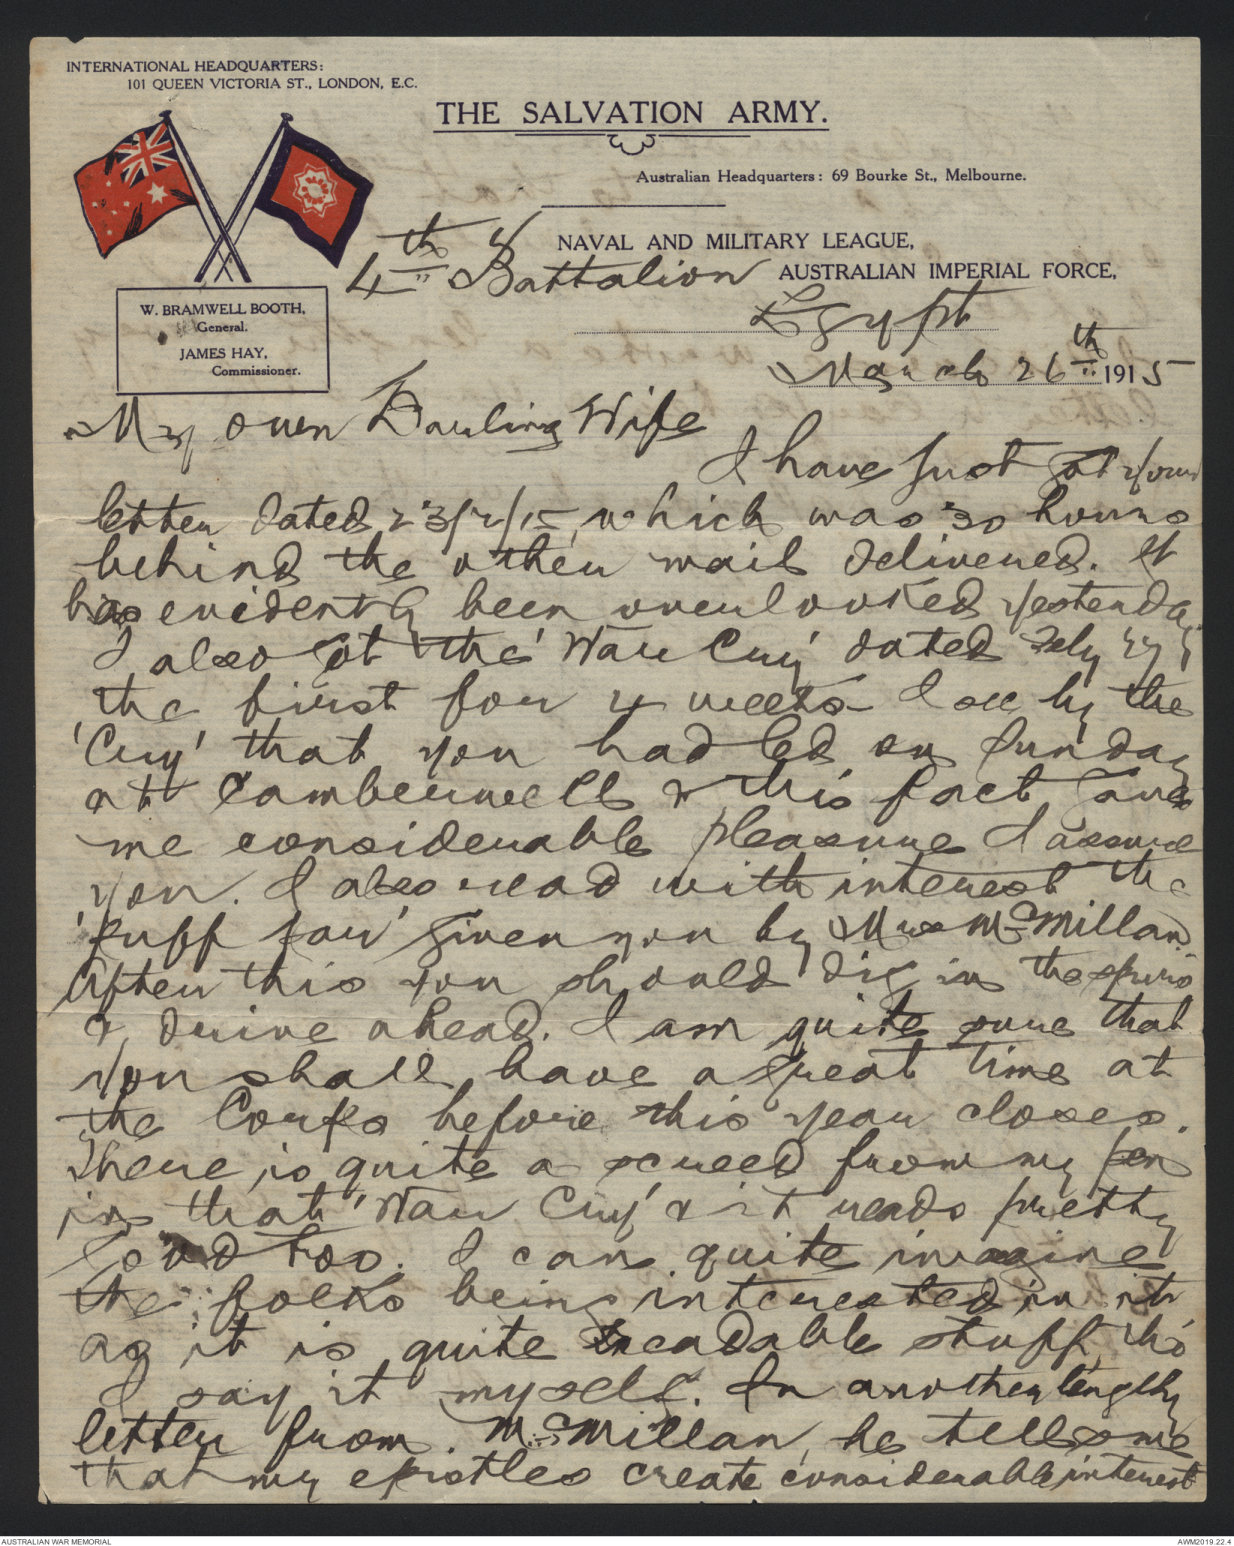 INTERNATIONAL HEADQUARTERS:
101 QUEEN VICTORIA ST., LONDON, E.C.
THE SALVATION ARMY.
Australian Headquarters: 69 Bourke St., Melbourne.
NAVAL AND MILITARY LEAGUE,
4th Battalion AUSTRALIAN IMPERIAL FORCE,
Egypt
March 26th 1915
W. BRAMWELL BOOTH,
General.
JAMES HAY,
Commissioner.
My own Darling Wife
I have just got your
letter dated 23/2/15, which was 30 hours
behind the other mail delivered. It
has evidently been overlooked yesterday
I also got the 'War Cry' dated Feby 27,
the first for 4 weeks I see by the
'Cry' that you had led on Sunday
at Camberwell & this fact gave
me considerable pleasure I assure
you. I also read with interest the
'puff par' given you by Mrs McMillan.
After this you should dig in the spurs
& drive ahead. I am quite sure that
you shall have a great time at
the Corps before this year closes.
There is quite a screed from my pen
in that 'War Cry' & it reads pretty
good too. I can quite imagine
the folks being interested in it
as it is quite readable stuff, tho'
I say it myself. In another lengthy
letter from McMillan, he tells me
that my epistles create considerable interest
AUSTRALIAN WAR MEMORIAL
AWM2019.22.4